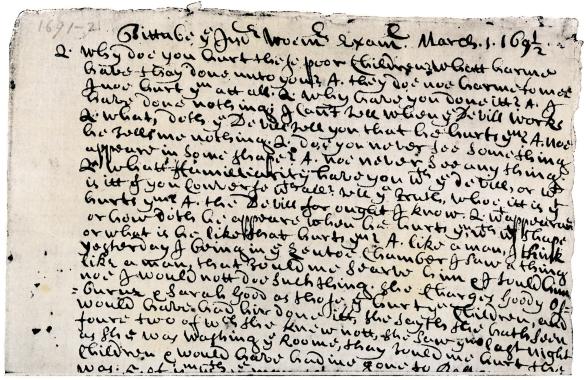 1691-2
Tittube ye Indn Woemns Examn March. 1. 169 1/2
Q. why doe you hurt these poor Children? whatt harme
have thay done unto you? A. they doe noe harme to me
I noe hurt ym att all. Q. why have you done itt? A. I
have done nothing; I Can't tell when ye Devill works
Q. what doth ye Devill tell you that he hurts ym? A. noe
he tells me nothing. Q. doe you never see Something
appeare in Some shape? A. noe never See any thing.
Q. whatt familiarity have you wth ye devill, or wt
is itt yt you Converse wthall? tell ye truth, whoe itt is yt
hurts ym? A. the Devill for ought I know. Q. wt appearanc
or how doth he appeare when he hurts ym, wth wt shape
or what is he like that hurts ym? A. like a man I think
yesterday I being in ye Lentoe Chamber I saw a thing
like a man, that Tould me Searve him & I Tould him
noe I would nott doe Such thing. she Charges Goody Os-
=burne & Sarah Good as those yt hurt ye Children, and
would have had hir done itt, she sayth she hath seen
foure two of wch she Knew nott she saw ym last night
as she was washing ye Roome, thay Tould me hurt the
Children & would have had me gone to
was. 5. of ym wth ye man